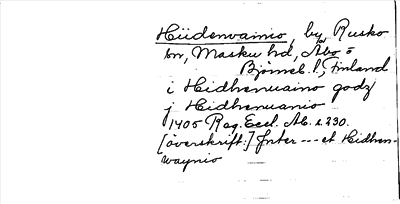 Hiidenvainio, by, Rusko
sn, Masku hd, Åbo o
Björneb. l., Finland
i Hidhenuaino godz
j Hidhenuanio
1405 Reg. Eccl. Ab. s. 230.
[överskrift:] Jnter --- et Hidhen-
waynio